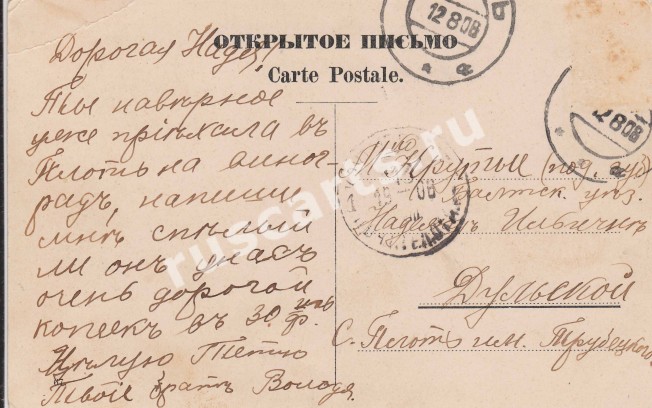 ОТКРЫТОЕ ПИСЬМО
Carte Postale.
12 8 08
12 8 08
Дорогая Надя!
Ты наверное
уже пріѣхала въ
Плоть на вино-
градъ, напиши
мнѣ спѣлый
ли онъ у насъ
очень дорогой
копеекъ въ 30.
Цѣлую Тетю
Твой братъ Володя.
Крутые
Балтск. уѣз.
Дульской
С. Плоть им. Трубецкого
ruscarts.ru